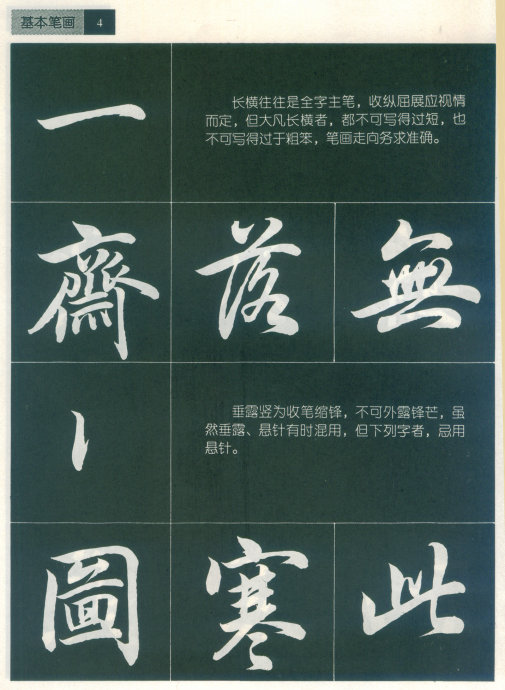 基本笔画 4
一
长横往往是全字主笔，收纵屈展应视情
而定，但大凡长横者，都不可写得过短，也
不可写得过于粗笨，笔画走向务求准确。
齋 落 無
垂露竖为收笔缩锋，不可外露锋芒，虽
然垂露、悬针有时混用，但下列字者，忌用
悬针。
圖 寒 此